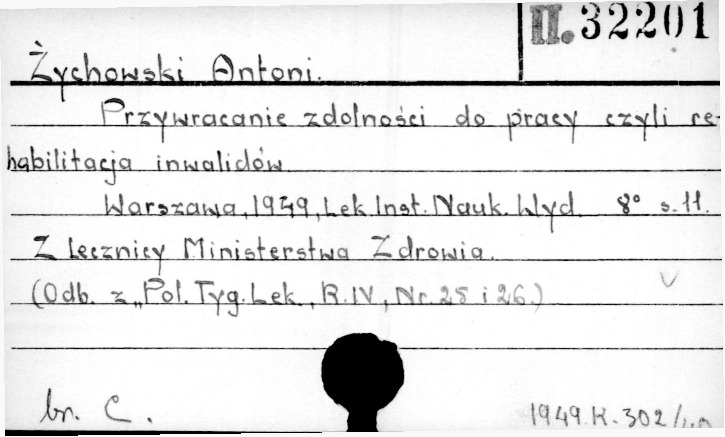 II. 32201
Żychowski Antoni.
Przywracanie zdolności do pracy czyli re-
habilitacja inwalidów.
Warszawa, 1949, Lek. Inst. Nauk. Wyd. 8° s. 11.
Z lecznicy Ministerstwa Zdrowia.
(Odb. z „Pol. Tyg. Lek., R. IV, Nr. 25 i 26.)
br. C.
1949. K. 302/